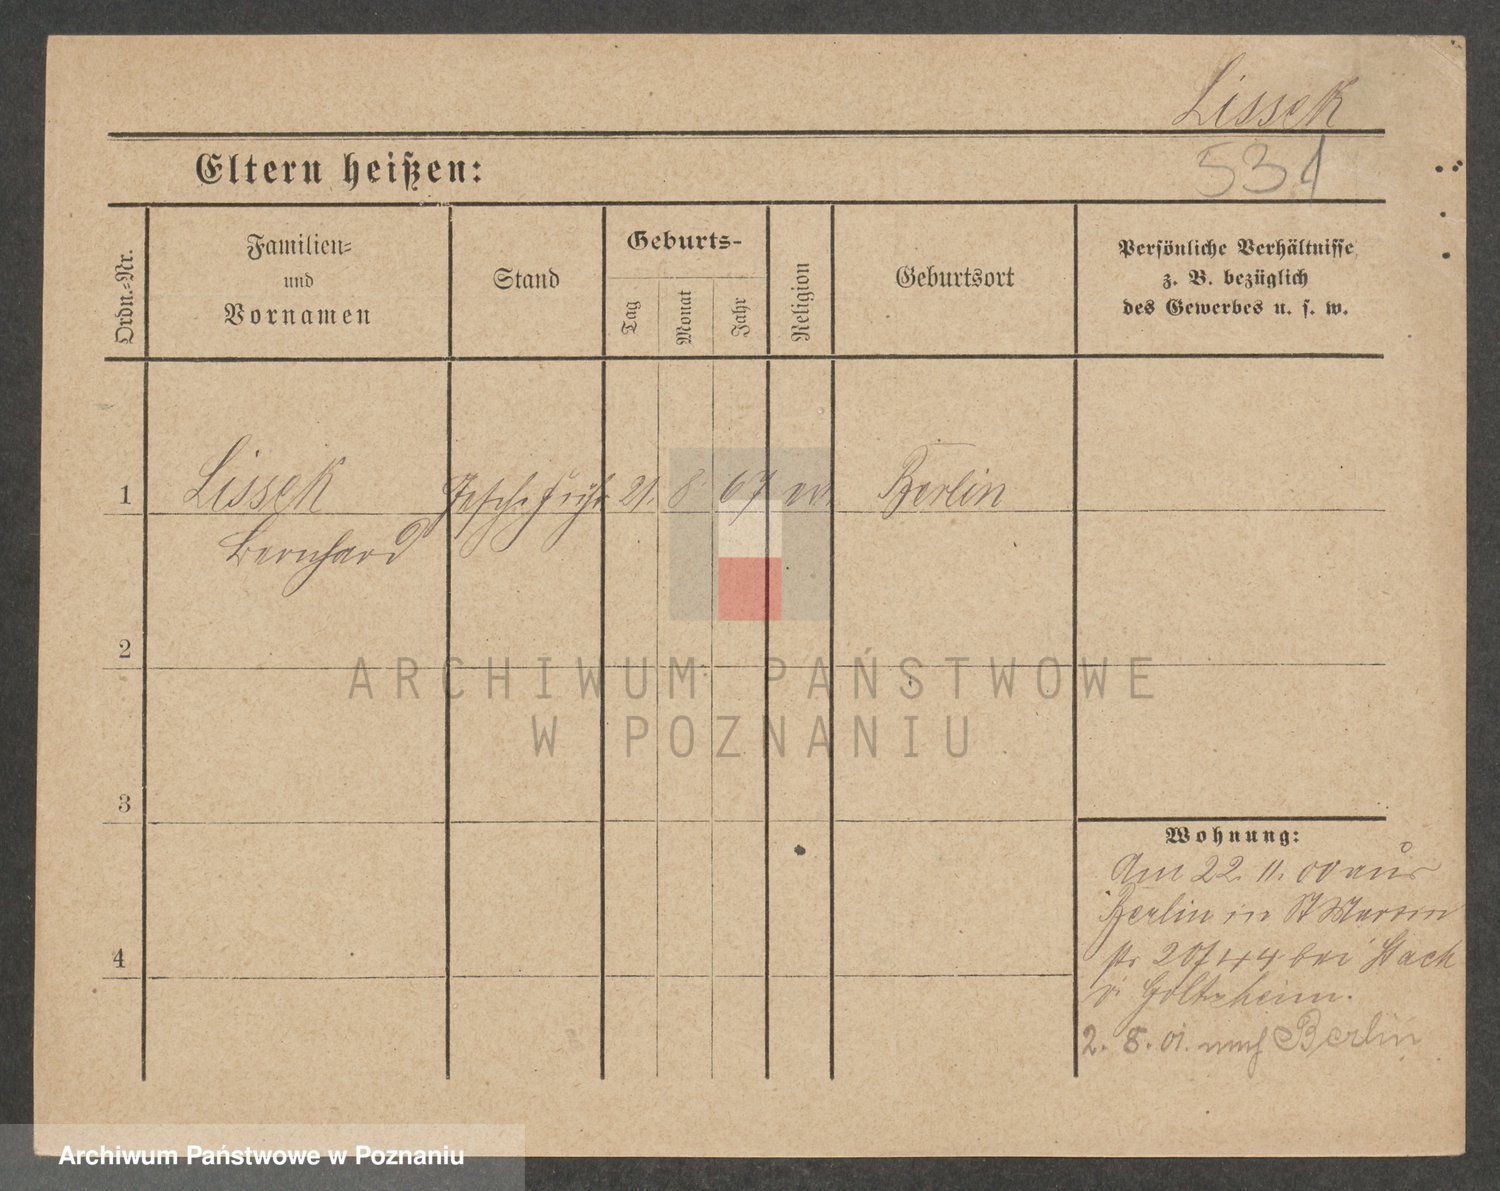 Lissek
531
Eltern heißen:
Ordn.-Nr.
Familien-
und
Vornamen
Stand
Geburts-
Tag
Monat
Jahr
Religion
Geburtsort
Persönliche Verhältnisse
z. B. bezüglich
des Gewerbes u. s. w.
1
Lissek
Gesch. Führ
21. 8. 67
ev.
Berlin
Bernhard
2
ARCHIWUM PAŃSTWOWE
W POZNANIU
3
Wohnung:
Am 22. 11. 00 aus
Berlin in St Martin
str 20 bei
2. 8. 01. nach Berlin
4
Archiwum Państwowe w Poznaniu